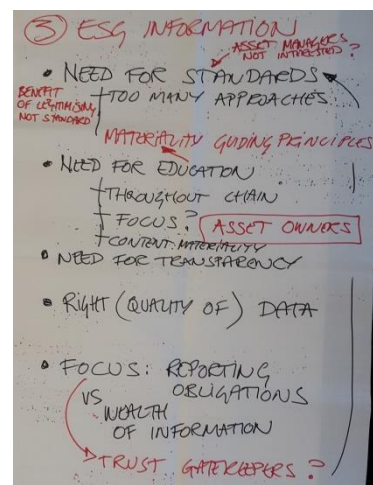 3 ESG INFORMATION
ASSET MANAGERS
NOT INTERESTED?
• NEED FOR STANDARDS
BENEFIT
OF LEGITIMISING,
NOT STANDARD
TOO MANY APPROACHES
MATERIALITY GUIDING PRINCIPLES
• NEED FOR EDUCATION
THROUGHOUT CHAIN
FOCUS?
ASSET OWNERS
CONTENT: MATERIALITY
• NEED FOR TRANSPARENCY
• RIGHT (QUALITY OF) DATA
• FOCUS: REPORTING
OBLIGATIONS
VS
WEALTH
OF INFORMATION
TRUST GATEKEEPERS?